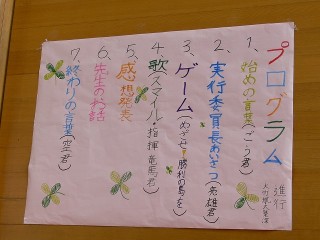 プログラム
進行
1、始めの言葉(ごう君)
2、実行委員長あいさつ(亮雄君)
3、ゲーム(めざせ!勝利の島を)
4、歌スマイル(指揮 竜馬君)
5、感想発表
6、先生のお話
7、終わりの言葉(空君)